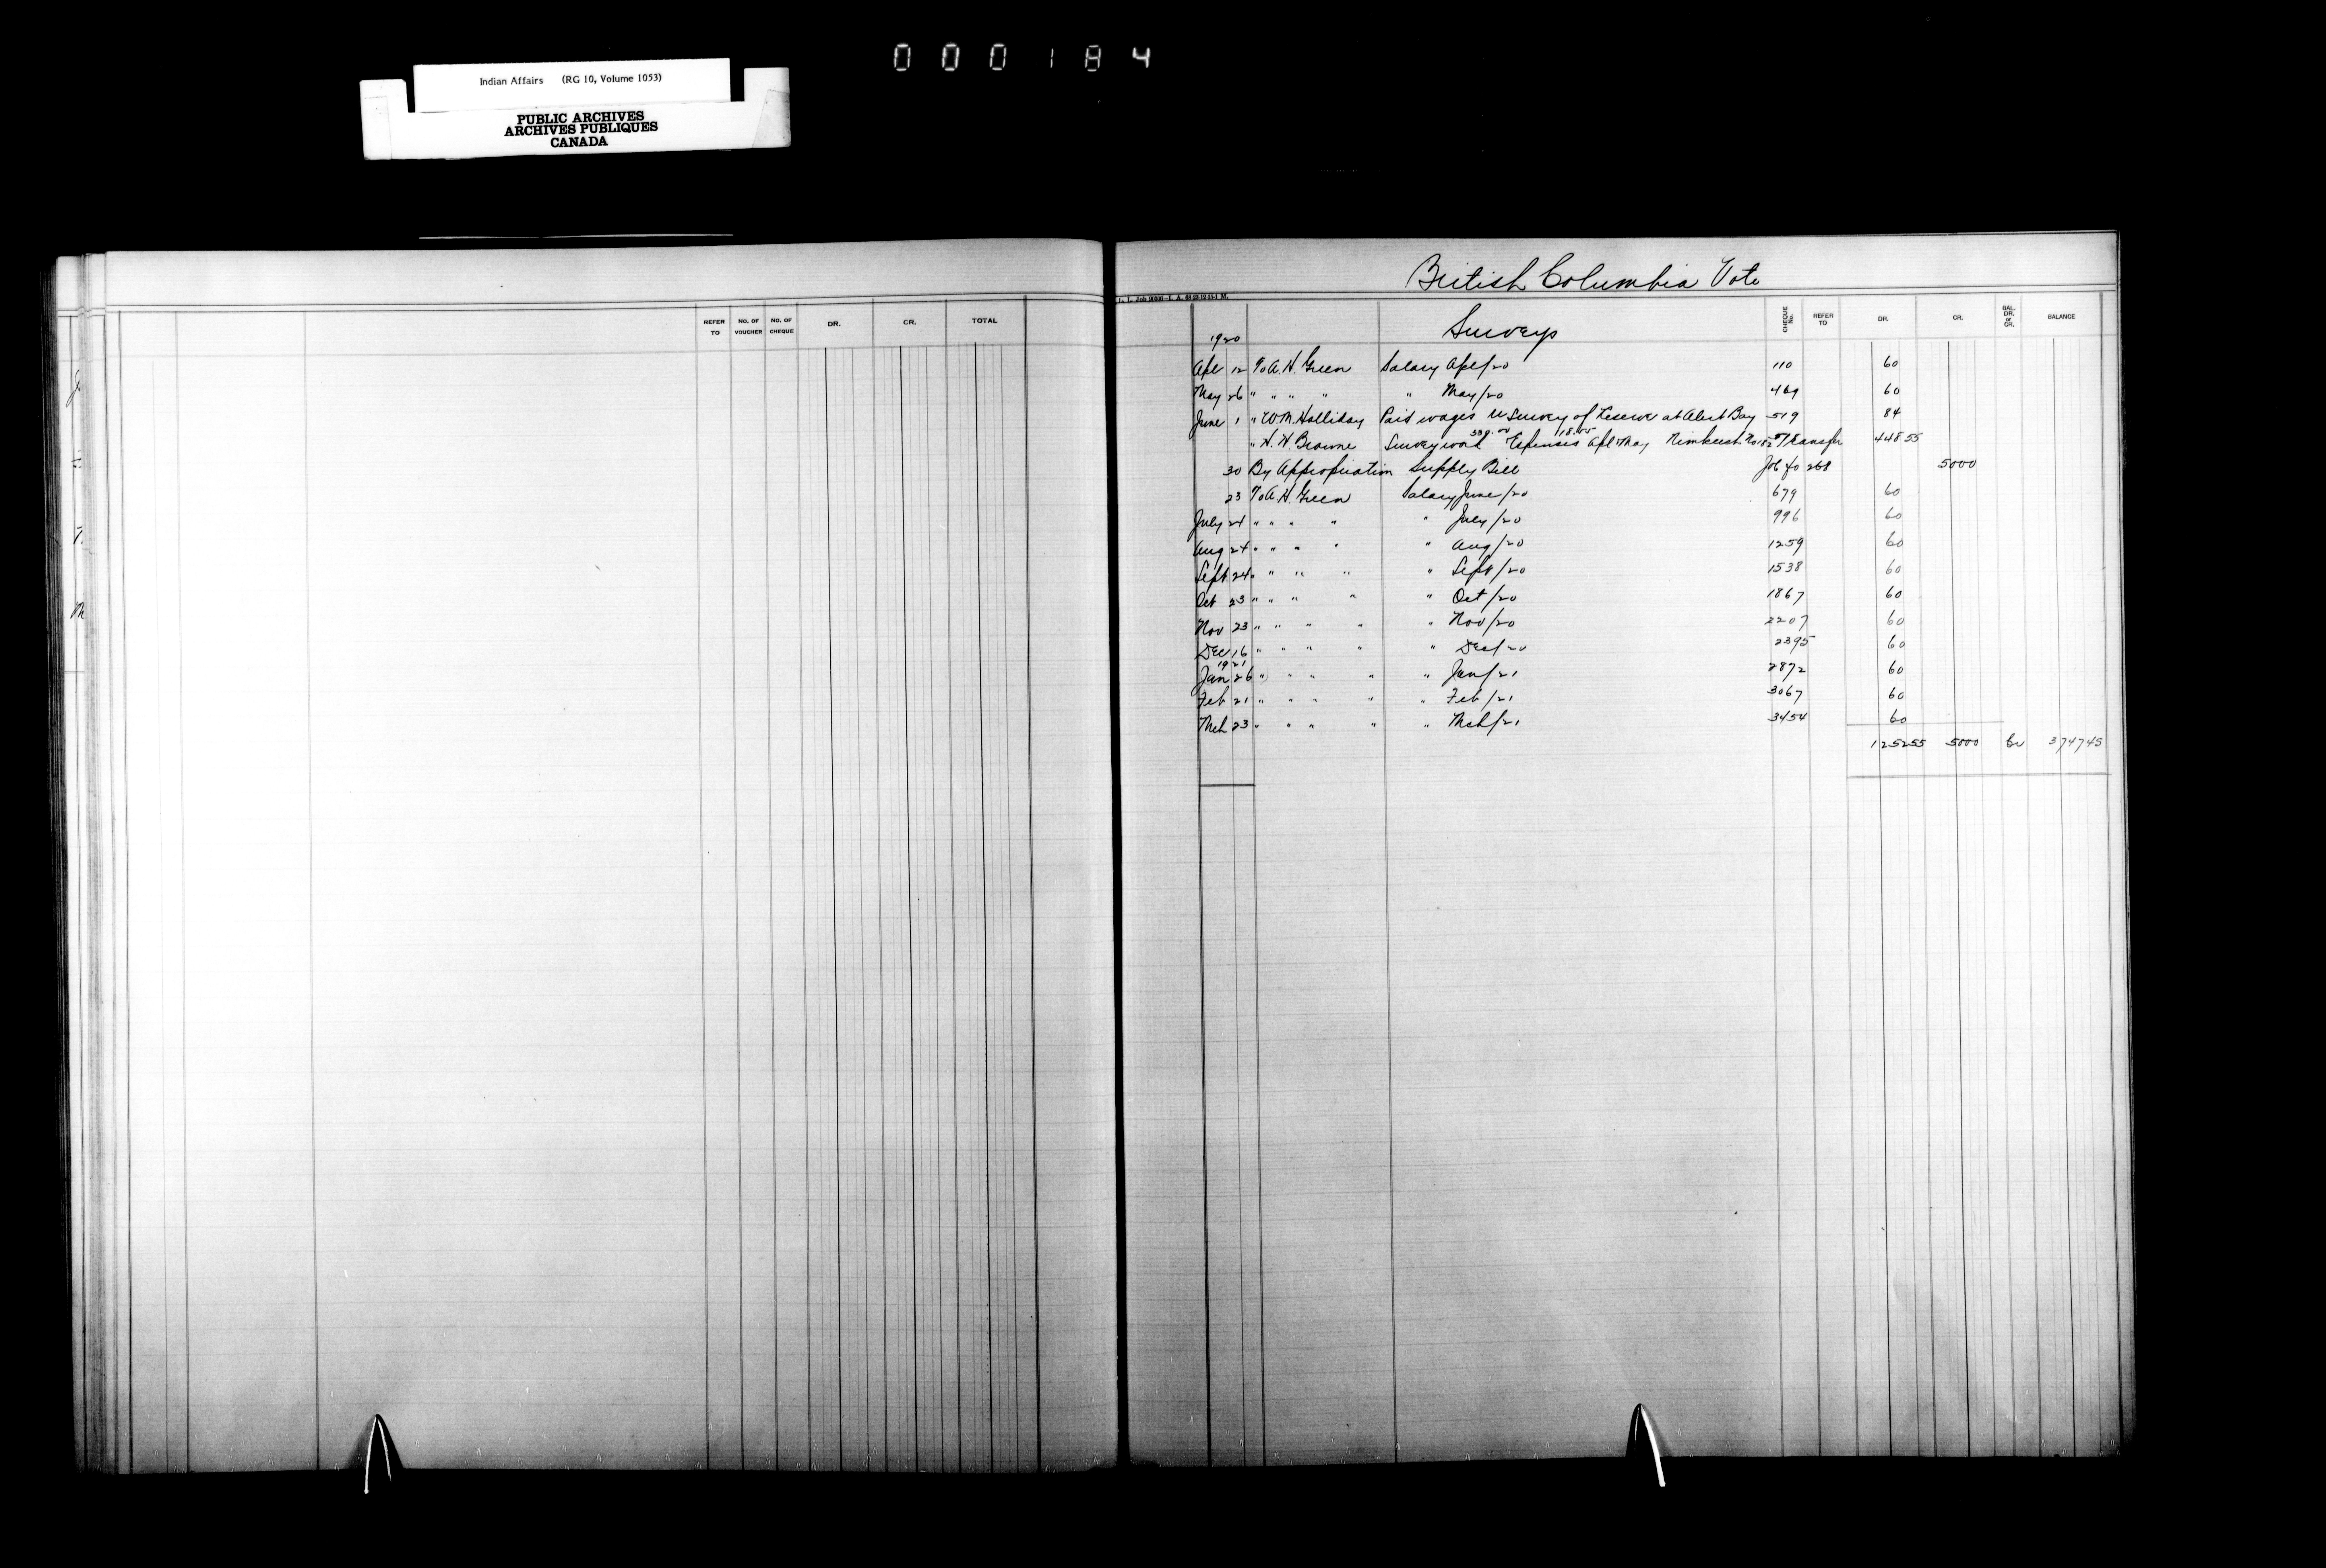 000184
Indian Affairs (RG 10, Volume 1053)
PUBLIC ARCHIVES
ARCHIVES PUBLIQUES
CANADA
REFER TO NO. OF VOUCHER NO. OF CHEQUE DR. CR. TOTAL
British Columbia Vote
1920 Surveys CHEQUE No. REFER TO DR. CR. BAL. DR. or CR. BALANCE
Apl 12 To A. H. Green Salary Apl/20 110 60
May 26 " " " " " May/20 469 60
June 1 " W. M. Halliday Paid wages re Survey of Reserve at Alert Bay 519 84
" H. H. Browne Survey work Expenses Apl May Nimkeesh Transfer 448 55
30 By Appropriation Supply Bill Job 40 268 5000
23 To A. H. Green Salary June/20 679 60
July 24 " " " " " July/20 996 60
Aug 24 " " " " " Aug/20 1259 60
Sept 24 " " " " " Sept/20 1538 60
Oct 23 " " " " " Oct/20 1867 60
Nov 23 " " " " " Nov/20 2207 60
Dec 16 " " " " " Dec/20 2395 60
1921
Jan 26 " " " " " Jan/21 2872 60
Feb 21 " " " " " Feb/21 3067 60
Mch 23 " " " " " Mch/21 3454 60
1252 55 5000 Cr 3747 45